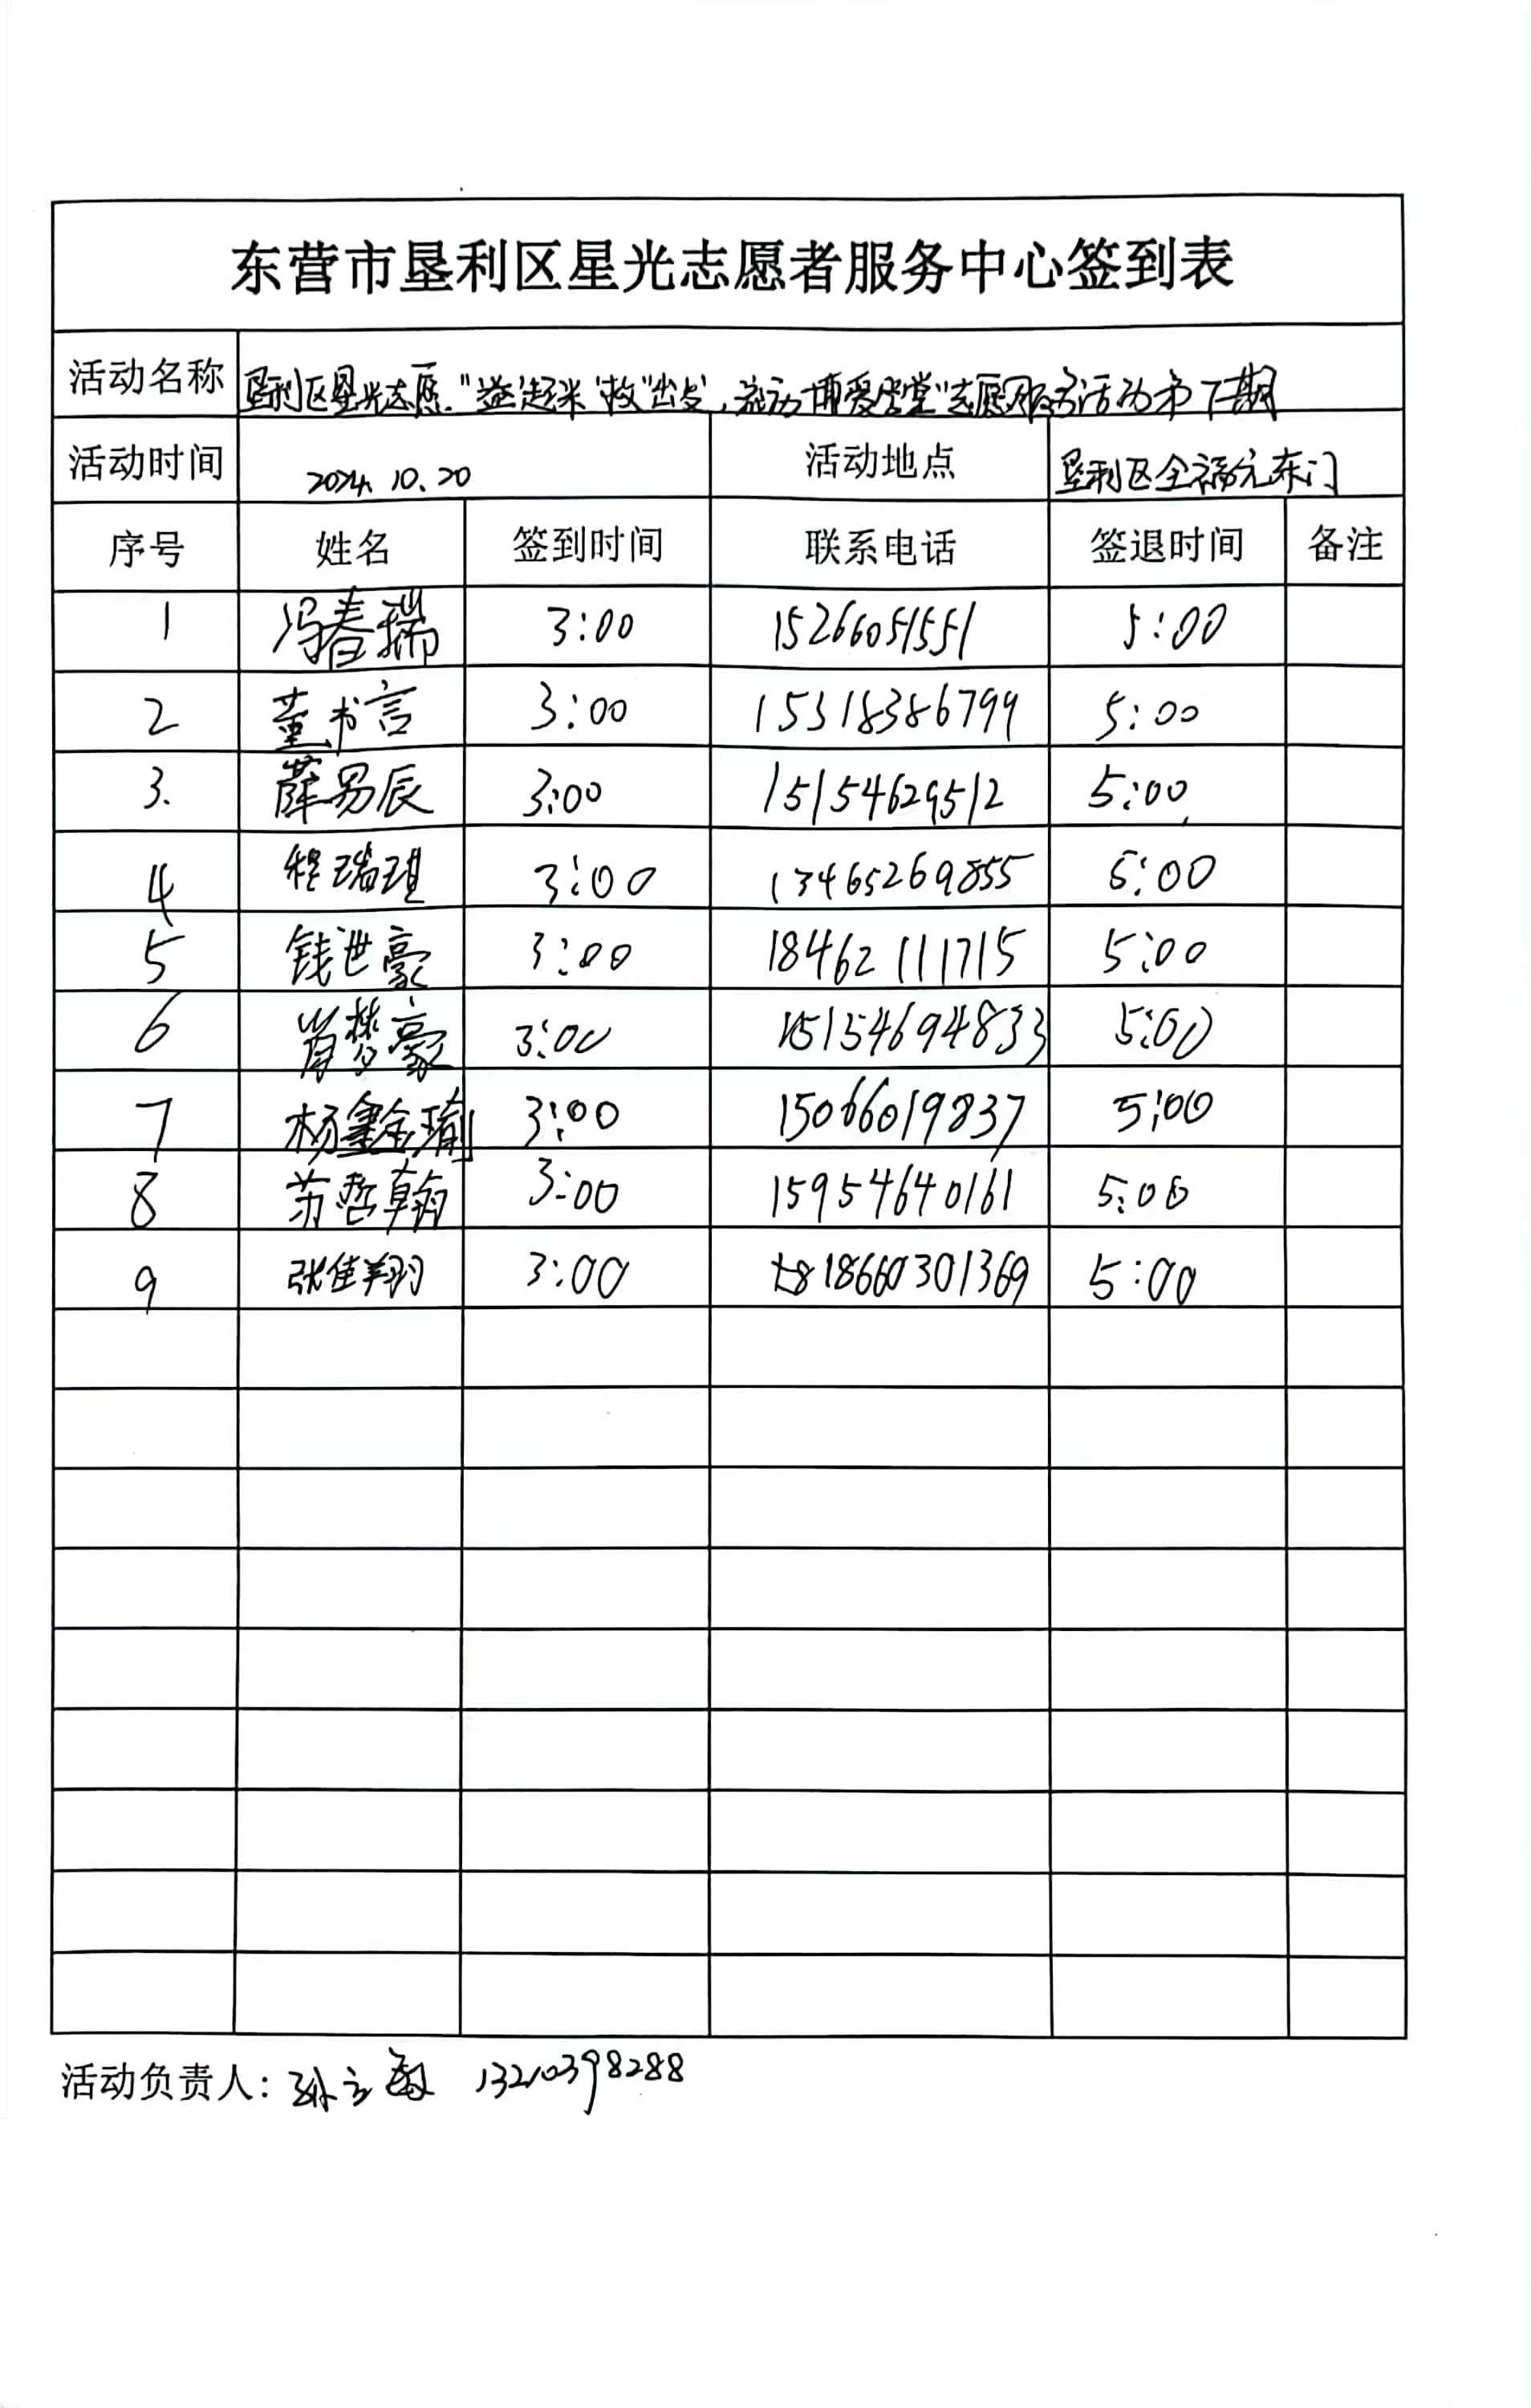 东营市垦利区星光志愿者服务中心签到表
活动名称 垦利区星光志愿"益'起来'救'出发,流动博爱学堂"志愿服务活动第7期
活动时间 2024.10.20 活动地点 垦利区全福元东门
序号 姓名 签到时间 联系电话 签退时间 备注
1 冯春瑞 3:00 15266051551 5:00
2 董书言 3:00 15318386799 5:00
3. 薛易辰 3:00 15154629512 5:00
4 程瑞琪 3:00 13465269855 5:00
5 钱世豪 3:00 18462111715 5:00
6 肖梦豪 3:00 15154694833 5:00
7 杨鑫瑜 3:00 15066019837 5:00
8 苏哲翰 3:00 15954640161 5:00
9 张佳翔 3:00 18660301369 5:00
活动负责人: 孙 13210398288